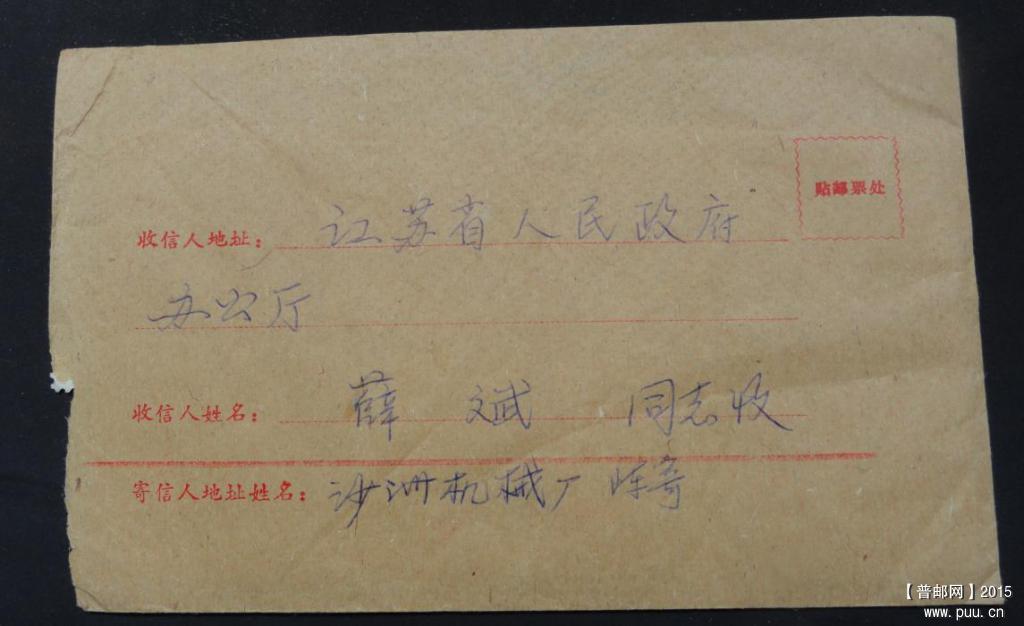 贴邮票处
收信人地址：江苏省人民政府
办公厅
收信人姓名：薛斌 同志收
寄信人地址姓名：沙洲机械厂 陈寄
【普邮网】2015
www.puu.cn